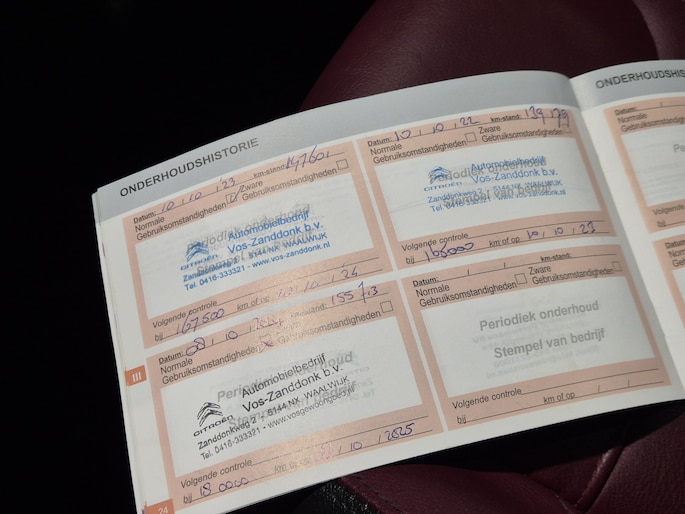 ONDERHOUDSHISTORIE
Datum: 10 / 10 / '23 km-stand: 147601
Normale Zware
Gebruiksomstandigheden Gebruiksomstandigheden
Periodiek onderhoud
Stempel van bedrijf
Automobielbedrijf
Vos-Zanddonk b.v.
CITROËN
Zanddonkweg 2 - 5144 NX WAALWIJK
Tel. 0416-333321 - www.vos-zanddonk.nl
Volgende controle
bij 167500 km of op / 10 / 24
Datum: 10 / 10 / 22 km-stand: 139 179
Normale Zware
Gebruiksomstandigheden Gebruiksomstandigheden
Periodiek onderhoud
Stempel van bedrijf
Automobielbedrijf
Vos-Zanddonk b.v.
CITROËN
Zanddonkweg 2 - 5144 NX WAALWIJK
Tel. 0416-333321 - www.vos-zanddonk.nl
Volgende controle
bij km of op 10 / 10 / 23
Datum: 08 / 10 / km-stand:
Normale Zware
Gebruiksomstandigheden Gebruiksomstandigheden
Periodiek onderhoud
Stempel van bedrijf
Automobielbedrijf
Vos-Zanddonk b.v.
CITROËN
Zanddonkweg 2 - 5144 NX WAALWIJK
Tel. 0416-333321 - www.vosgewoongoed.nl
Volgende controle
bij 180000 km of op / 10 / 2025
Datum: / / km-stand:
Normale Zware
Gebruiksomstandigheden Gebruiksomstandigheden
Periodiek onderhoud
Stempel van bedrijf
Volgende controle
bij km of op / /
III
24
ONDERHOUDSHIST
Datum: /
Normale
Gebruiksomstandigheden
Volgende controle
bij
Datum:
Normale
Gebruiksomst
Volgende
bij